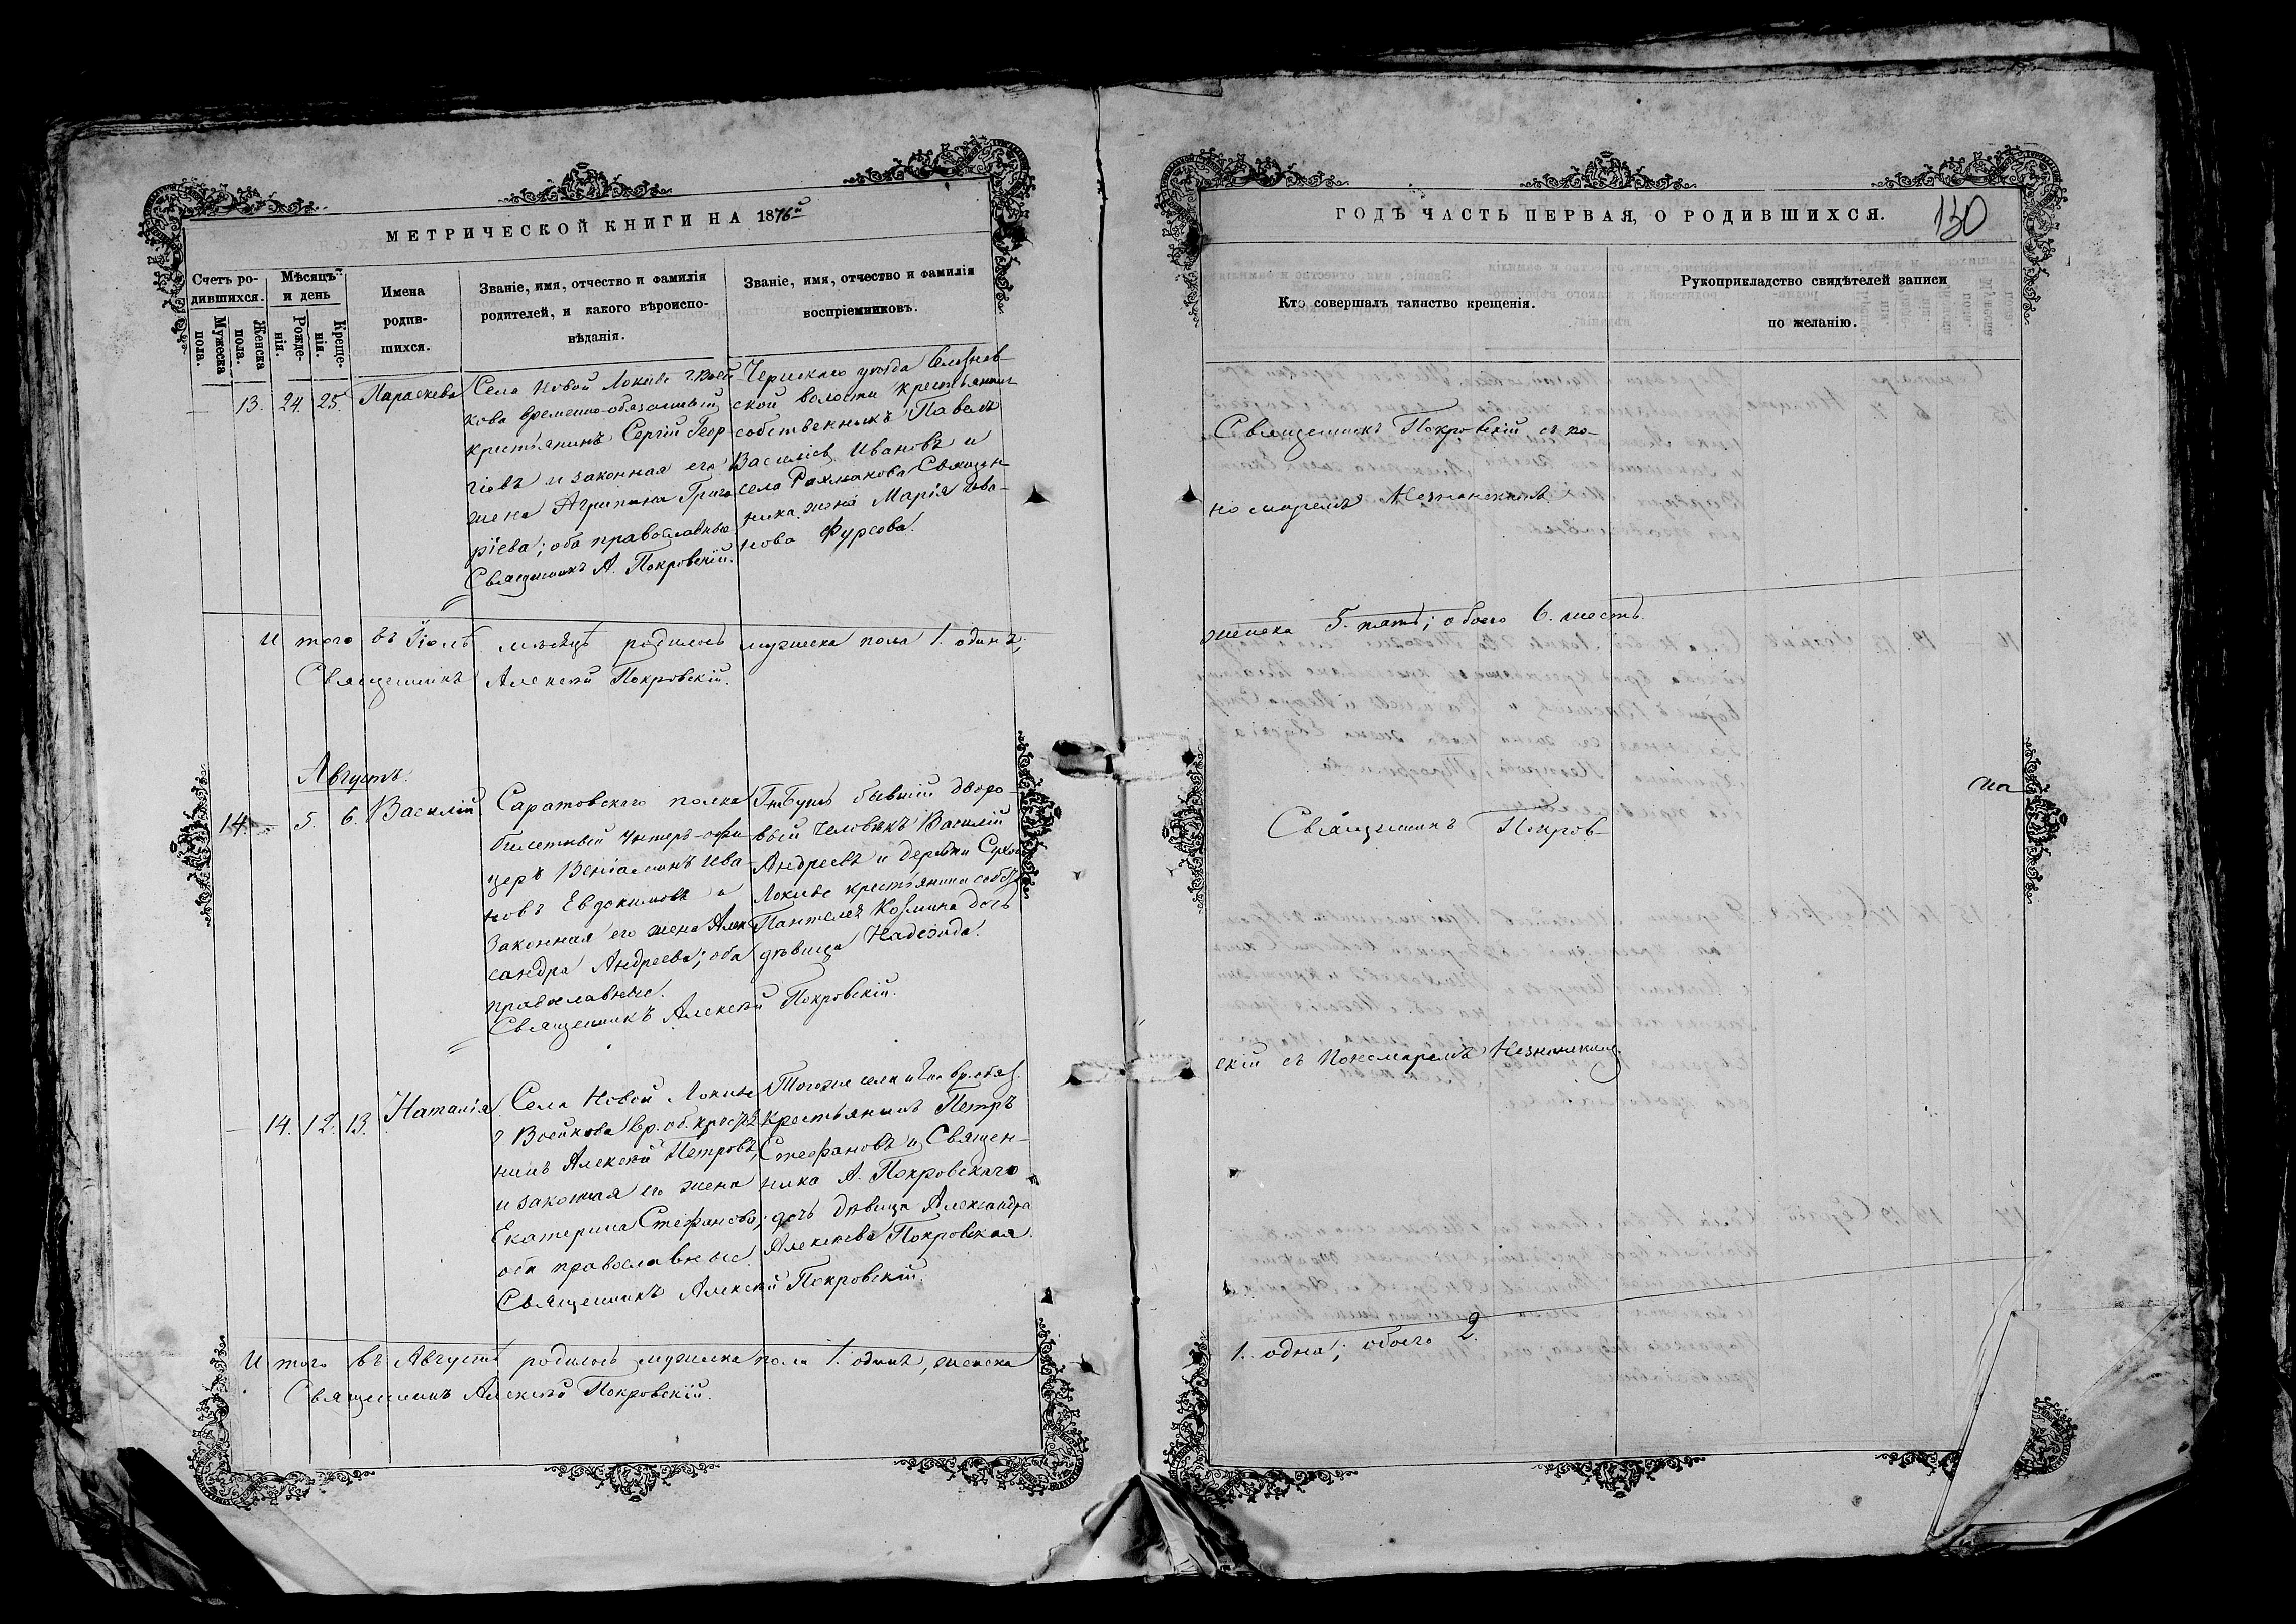 МЕТРИЧЕСКОЙ КНИГИ НА 1876й
Счетъ ро-
дившихся.
Мужеска
пола.
Женска
пола.
Мѣсяцъ
и день
Рожде-
нія.
Креще-
нія.
Имена
родив-
шихся.
Званіе, имя, отчество и фамилія
родителей, и какого вѣроиспо-
вѣданія.
Званіе, имя, отчество и фамилія
воспріемниковъ.
13. 24. 25. Параскева
Села Новой Локны г. Воей
кова временно-обязанный
крестьянинъ Сергій Геор-
гіевъ и законная его
жена Агрипина Григо
ріева; оба православные
Священникъ А. Покровскій.
Чернскаго уѣзда
ской волости крестьянинъ
собственникъ Павелъ
Василіевъ Ивановъ и
села Рахманова Священ-
ника жена Марія Ива-
нова Фурсова.
И того въ Іюлѣ мѣсяцѣ родилось мужеска пола 1. одинъ,
Священникъ Алексѣй Покровскій.
Августъ.
14. 5. 6. Василій
Саратовскаго полка
билетный Унтеръ-офи
церъ Веніаминъ Ива
новъ Евдокимовъ и
законная его жена Алек
сандра Андреева; оба
православные.
Священникъ Алексѣй Покровскій.
бывшій дворо-
вый человѣкъ Василій
Андреевъ и деревни
Локны крестьянина собст
Пантелея Козмина дочь
дѣвица Надежда.
14. 12. 13. Наталія
Села Новой Локны
г. Воейкова вр. об. крестья
нинъ Алексѣй Петровъ,
и законная его жена
Екатерина Стефанова;
оба православные.
Священникъ Алексѣй Покровскій.
Тогоже села вр. обяз.
крестьянинъ Петръ
Стефановъ и Священ-
ника А. Покровскаго
дочь дѣвица Александра
Алексѣева Покровская.
И того въ Августѣ родилось мужеска пола 1. одинъ, женска
Священникъ Алексѣй Покровскій.
ГОДЪ ЧАСТЬ ПЕРВАЯ, О РОДИВШИХСЯ.
130
Кто совершалъ таинство крещенія.
Рукоприкладство свидѣтелей записи
по желанію.
Священникъ Покровскій съ по-
номаремъ Незнанскимъ.
женска 5. пять; обоего 6. шесть.
Священникъ Покров-
скій съ Пономаремъ Незнанскимъ.
1. одна; обоего 2.